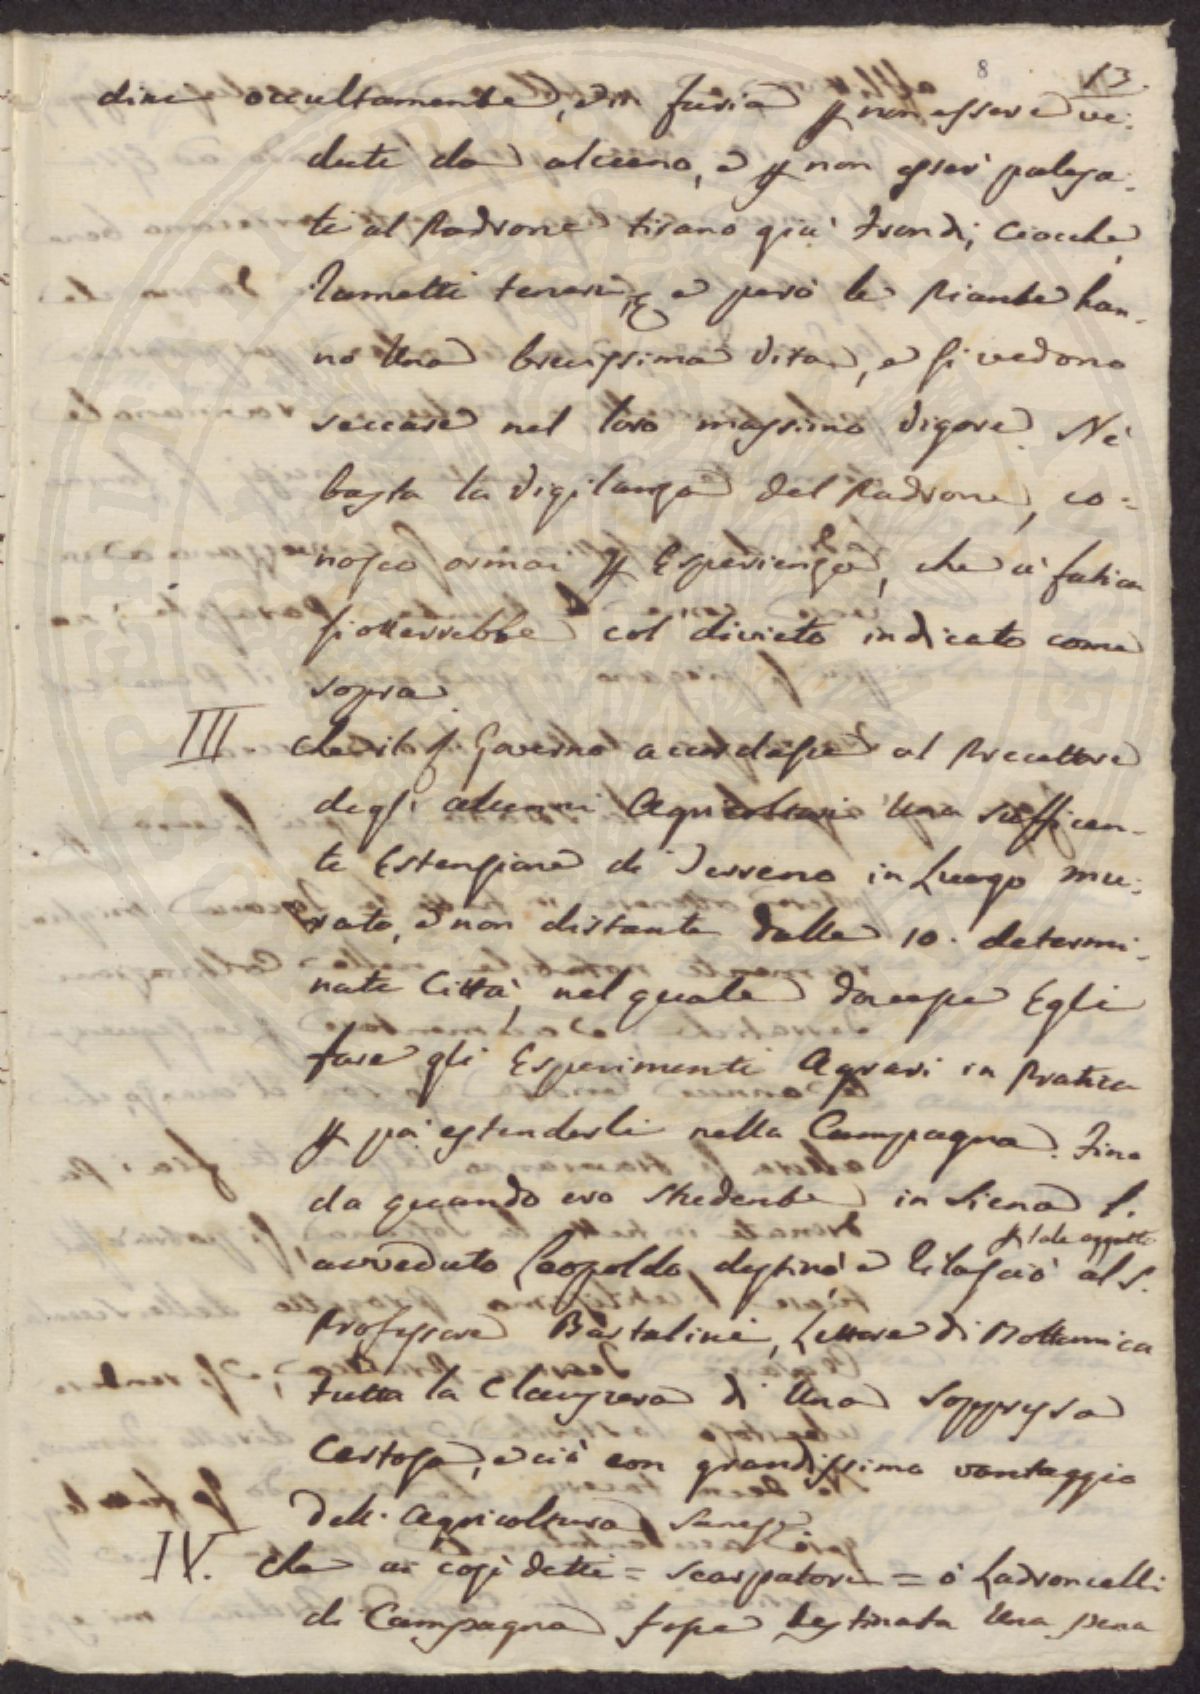 8 13.
dine occultamente, ed in furia p non essere ve-
duti da alcuno, e p non esser palesa-
ti al Padrone tirano giù Frondi, Ciocche,
Rametti teneri, &c e però le Piante han-
no Una brevissima Vita, e si vedono
seccare nel loro massimo Vigore. Nè
basta la Vigilanza del Padrone, co-
nosco ormai p Esperienza, che a fatica
si otterrebbe col divieto indicato come
sopra.
III Che il Governo accordasse al Precettore
degli alunni Agricoltori Una sufficen-
te Estensione di Terreno in Luogo mu-
rato, e non distante dalle 10. determi-
nate Città, nel quale dovesse Egli
fare gli Esperimenti Agrari in Pratica
p poi estenderli nella Campagna. Fino
da quando ero Studente in Siena l'
avveduto Leopoldo destinò e rilasciò p tale oggetto al S.
Professore Bartalini, Lettore di Bottanica
tutta la Clausura di Una Soppressa
Certosa, e ciò con grandissimo vantaggio
dell' Agricoltura Sanese.
IV. Che ai così detti = Scarpatori = o Ladroncelli
di Campagna fosse destinata Una pena